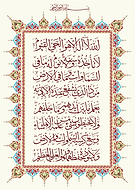 بسم الله الرحمن الرحيم
الله لا إله إلا هو الحي القيوم
لا تأخذه سنة ولا نوم له ما في
السماوات وما في الأرض
من ذا الذي يشفع عنده إلا بإذنه
يعلم ما بين أيديهم وما خلفهم
ولا يحيطون بشيء من علمه إلا بما
شاء وسع كرسيه السماوات والأرض
ولا يئوده حفظهما وهو العلي العظيم